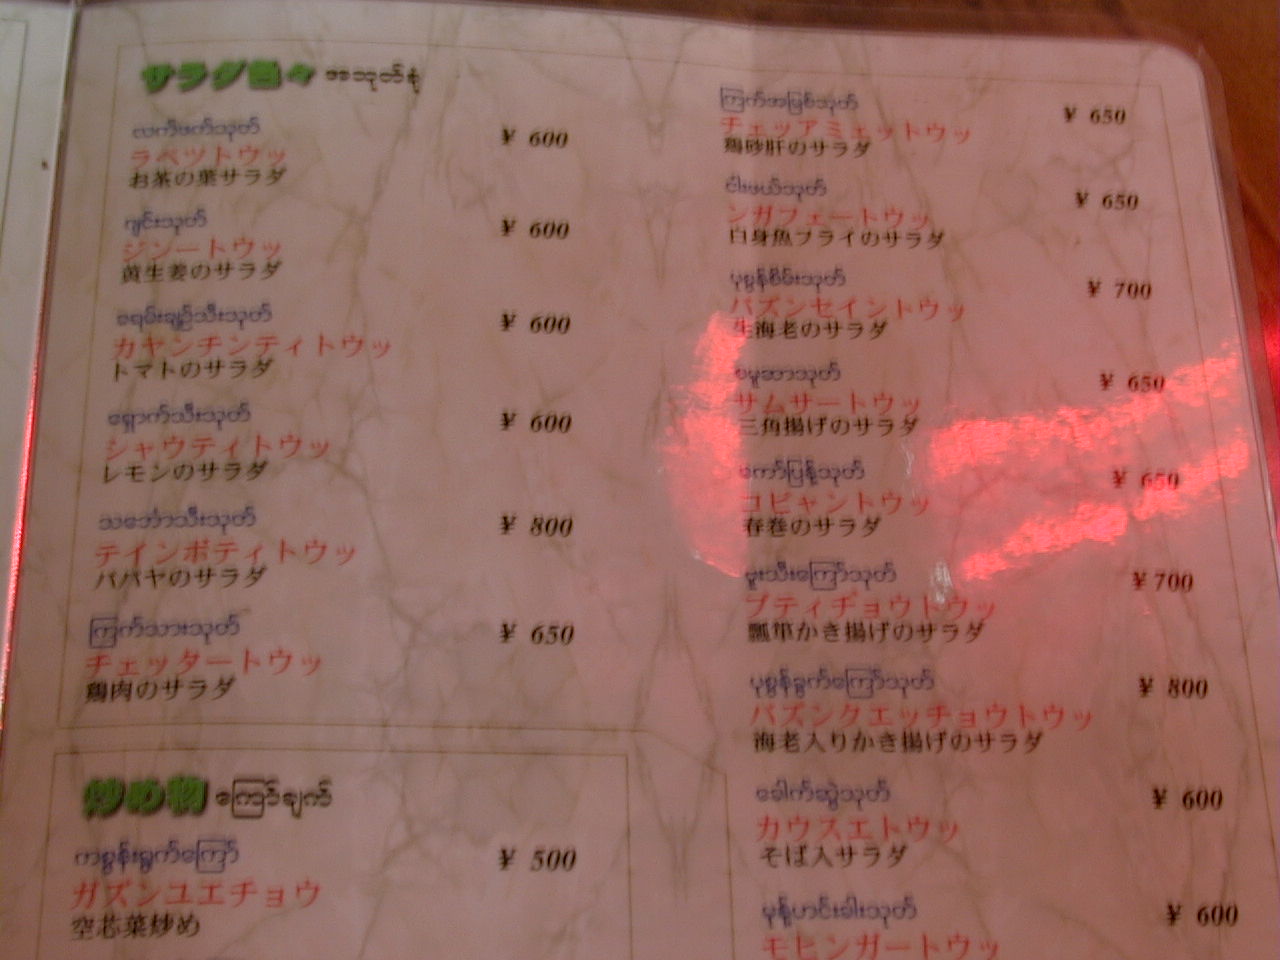 サラダ色々 အသုတ်စုံ
လက်ဖက်သုတ် ¥ 600
ラペットウッ
お茶の葉サラダ
ဂျင်းသုတ် ¥ 600
ジンートウッ
黄生姜のサラダ
ခရမ်းချဉ်သီးသုတ် ¥ 600
カヤンチンティトウッ
トマトのサラダ
ရှောက်သီးသုတ် ¥ 600
シャウティトウッ
レモンのサラダ
သင်္ဘောသီးသုတ် ¥ 800
テインボティトウッ
パパヤのサラダ
ကြက်သားသုတ် ¥ 650
チェッタートウッ
鶏肉のサラダ
炒め物 ကြော်ချက်
ကစွန်းရွက်ကြော် ¥ 500
ガズンユエチョウ
空芯菜炒め
ကြက်အမြစ်သုတ် ¥ 650
チェッアミェットウッ
鶏砂肝のサラダ
ငါးဖယ်သုတ် ¥ 650
ンガフェートウッ
白身魚フライのサラダ
ပုစွန်စိမ်းသုတ် ¥ 700
パズンセイントウッ
生海老のサラダ
စမူဆာသုတ် ¥ 650
サムサートウッ
三角揚げのサラダ
ကော်ပြန့်သုတ် ¥ 650
コピャントウッ
春巻のサラダ
ဗူးသီးကြော်သုတ် ¥700
ブティヂョウトウッ
瓢箪かき揚げのサラダ
ပုစွန်ခွက်ကြော်သုတ် ¥ 800
パズンクエッチョウトウッ
海老入りかき揚げのサラダ
ခေါက်ဆွဲသုတ် ¥ 600
カウスエトウッ
そば入サラダ
မုန့်ဟင်းခါးသုတ် ¥ 600
モヒンガートウッ